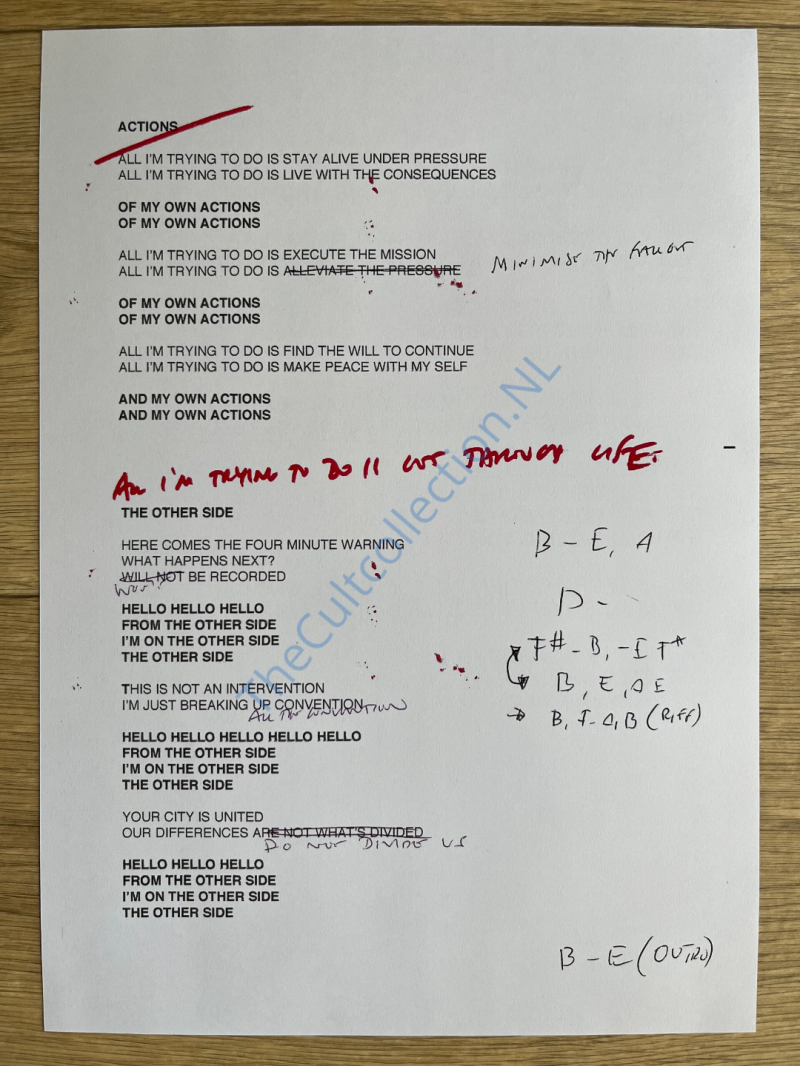 ACTIONS
ALL I'M TRYING TO DO IS STAY ALIVE UNDER PRESSURE
ALL I'M TRYING TO DO IS LIVE WITH THE CONSEQUENCES
OF MY OWN ACTIONS
OF MY OWN ACTIONS
ALL I'M TRYING TO DO IS EXECUTE THE MISSION
ALL I'M TRYING TO DO IS ALLEVIATE THE PRESSURE MINIMISE THE FALLOUT
OF MY OWN ACTIONS
OF MY OWN ACTIONS
ALL I'M TRYING TO DO IS FIND THE WILL TO CONTINUE
ALL I'M TRYING TO DO IS MAKE PEACE WITH MY SELF
AND MY OWN ACTIONS
AND MY OWN ACTIONS
ALL I'M TRYING TO DO IS THROUGH LIFE.
THE OTHER SIDE
HERE COMES THE FOUR MINUTE WARNING
WHAT HAPPENS NEXT?
WILL NOT BE RECORDED
WON'T
HELLO HELLO HELLO
FROM THE OTHER SIDE
I'M ON THE OTHER SIDE
THE OTHER SIDE
THIS IS NOT AN INTERVENTION
I'M JUST BREAKING UP CONVENTION
ALL THE CONVENTION
HELLO HELLO HELLO HELLO HELLO
FROM THE OTHER SIDE
I'M ON THE OTHER SIDE
THE OTHER SIDE
YOUR CITY IS UNITED
OUR DIFFERENCES ARE NOT WHAT'S DIVIDED
DO NOT DIVIDE US
HELLO HELLO HELLO
FROM THE OTHER SIDE
I'M ON THE OTHER SIDE
THE OTHER SIDE
B - E, A
D -
F# - B, - E F#
B, E, A E
B, E - A, B (RIFF)
B - E (OUTRO)
TheCultcollection.NL